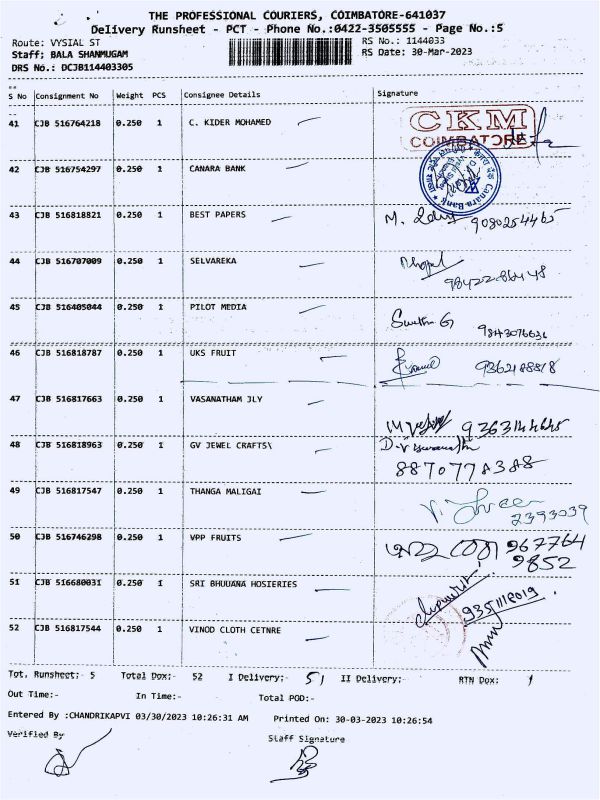 THE PROFESSIONAL COURIERS, COIMBATORE-641037
Delivery Runsheet - PCT - Phone No.:0422-3505555 - Page No.:5
Route: VYSIAL ST RS No.: 1144033
Staff: BALA SHANMUGAM RS Date: 30-Mar-2023
DRS No.: DCJB114403305
S No Consignment No Weight PCS Consignee Details Signature
41 CJB 516764218 0.250 1 C. KIDER MOHAMED CKM
COIMBATORE
42 CJB 516754297 0.250 1 CANARA BANK Canara Bank
43 CJB 516818821 0.250 1 BEST PAPERS M. 9080254465
44 CJB 516707009 0.250 1 SELVAREKA
45 CJB 516405044 0.250 1 PILOT MEDIA Swetha G 9843076631
46 CJB 516818787 0.250 1 UKS FRUIT 9362188818
47 CJB 516817663 0.250 1 VASANATHAM JLY 9363144645
48 CJB 516818963 0.250 1 GV JEWEL CRAFTS\ D.V
8870778388
49 CJB 516817547 0.250 1 THANGA MALIGAI
2393039
50 CJB 516746298 0.250 1 VPP FRUITS 967764
9852
51 CJB 516680031 0.250 1 SRI BHUUANA HOSIERIES 9351118019
52 CJB 516817544 0.250 1 VINOD CLOTH CETNRE
Tot. Runsheet:- 5 Total Dox:- 52 I Delivery:- 51 II Delivery:- RTN Dox: 1
Out Time:- In Time:- Total POD:-
Entered By :CHANDRIKAPVI 03/30/2023 10:26:31 AM Printed On: 30-03-2023 10:26:54
Verified By Staff Signature